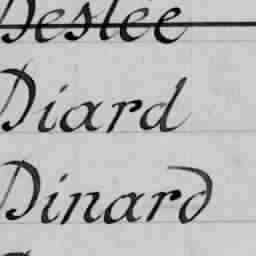 Deslée
Diard
Dinard